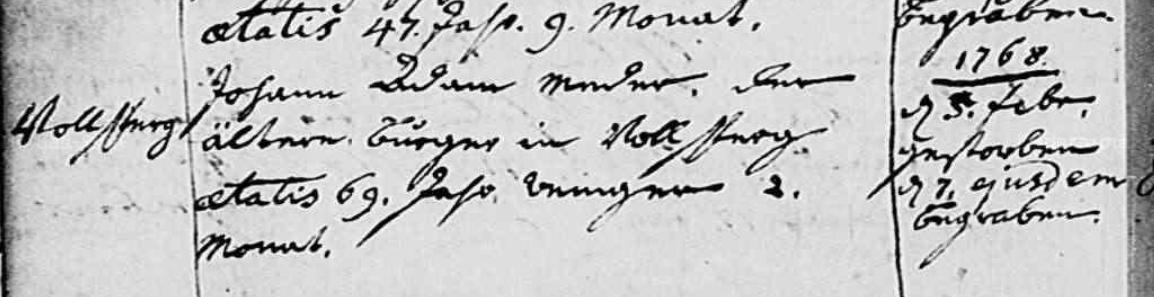 ætatis 47. Jahr. 9. Monat.
Vollsberg
Johann Adam Meder, der
ältere Burger in Vollsberg
ætatis 69. Jahr weniger 2.
Monat.
begraben.
1768.
d. 5. Febr.
gestorben
d. 7. ejusdem
begraben.